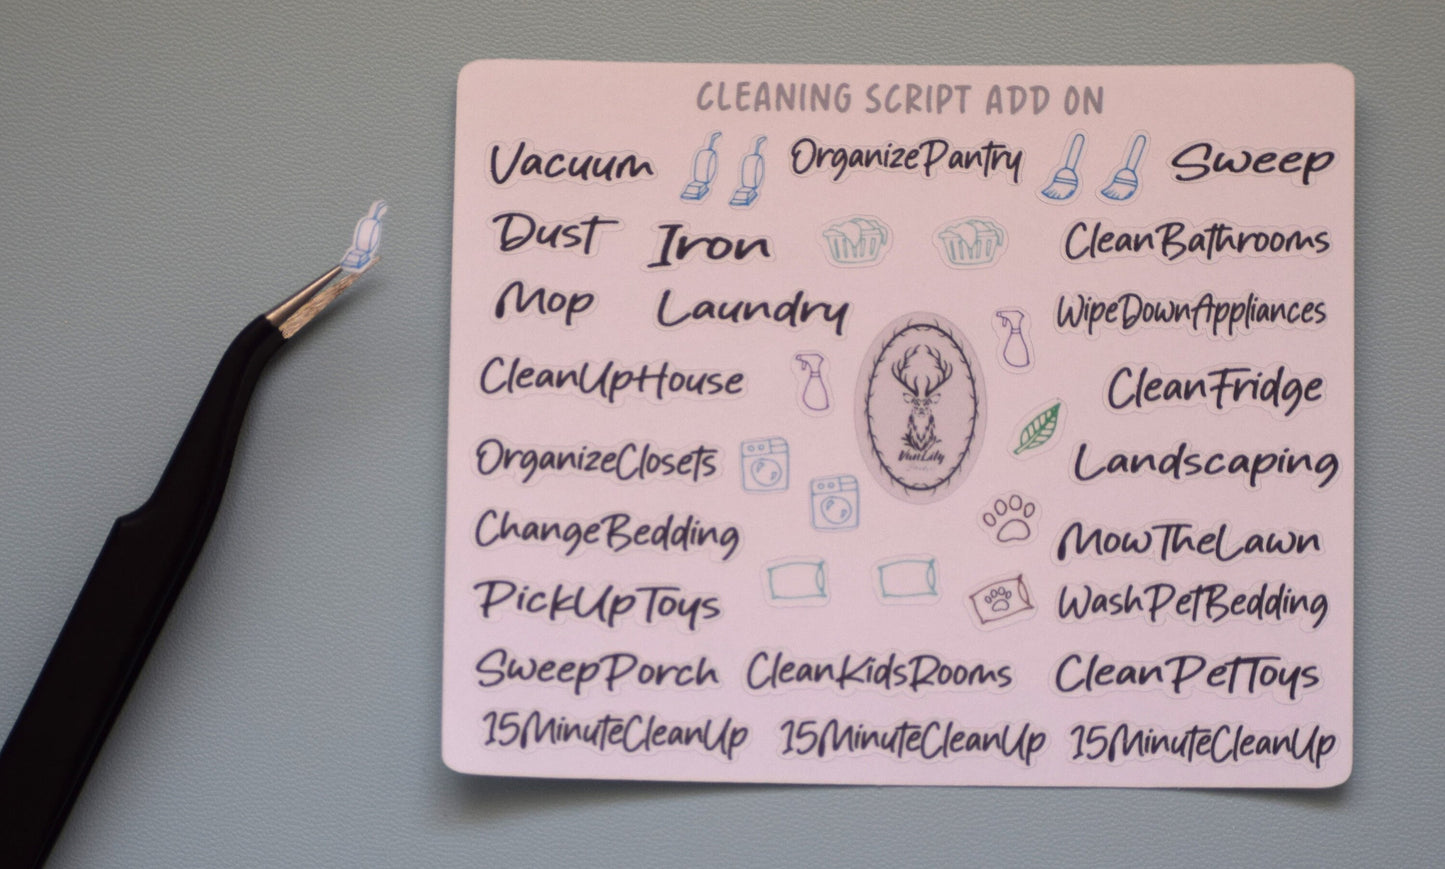 CLEANING SCRIPT ADD ON
Vacuum OrganizePantry Sweep
Dust Iron CleanBathrooms
Mop Laundry WipeDownAppliances
CleanUpHouse CleanFridge
OrganizeClosets Landscaping
VanLily
ChangeBedding MowTheLawn
PickUpToys WashPetBedding
SweepPorch CleanKidsRooms CleanPetToys
15MinuteCleanUp 15MinuteCleanUp 15MinuteCleanUp